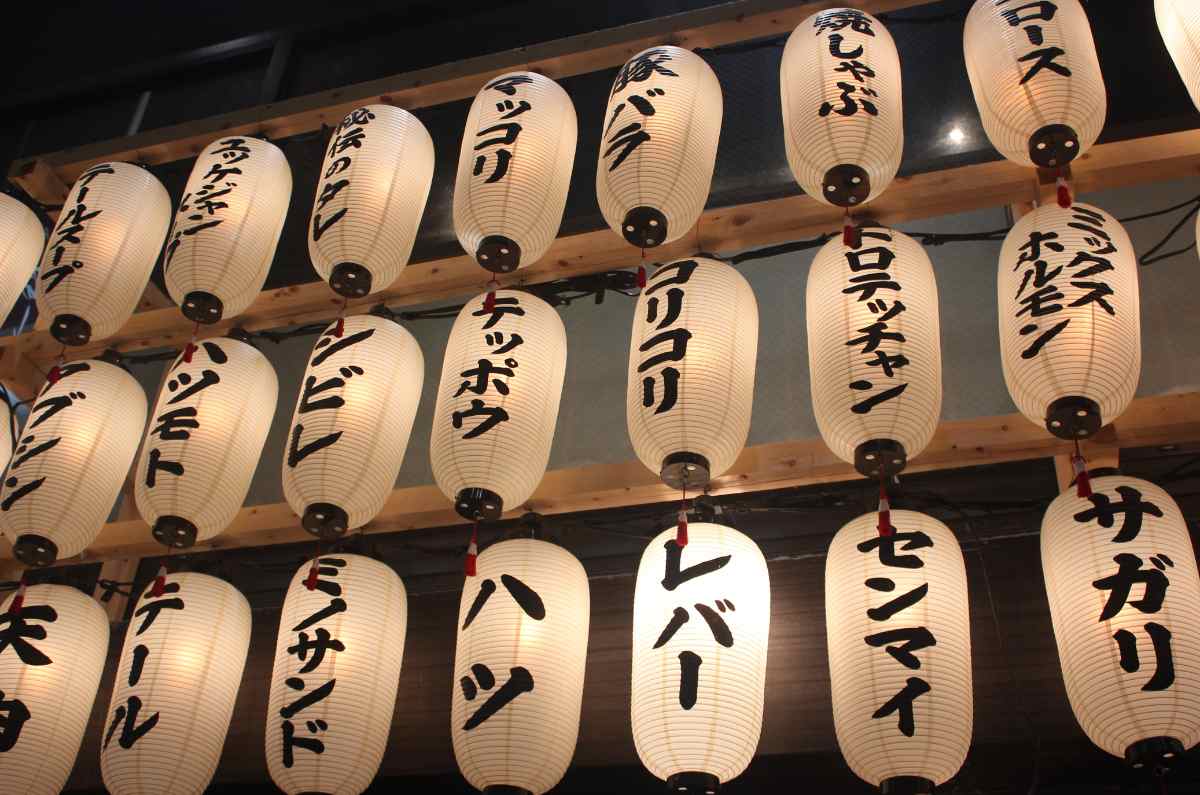 テールスープ
ユッケジャン
秘伝のタレ
マッコリ
豚バラ
焼しゃぶ
ロース
ウブシン
ハツモト
シビレ
テッポウ
コリコリ
トロテッチャン
ミックス
ホルモン
テール
ミノサンド
ハツ
レバー
センマイ
サガリ